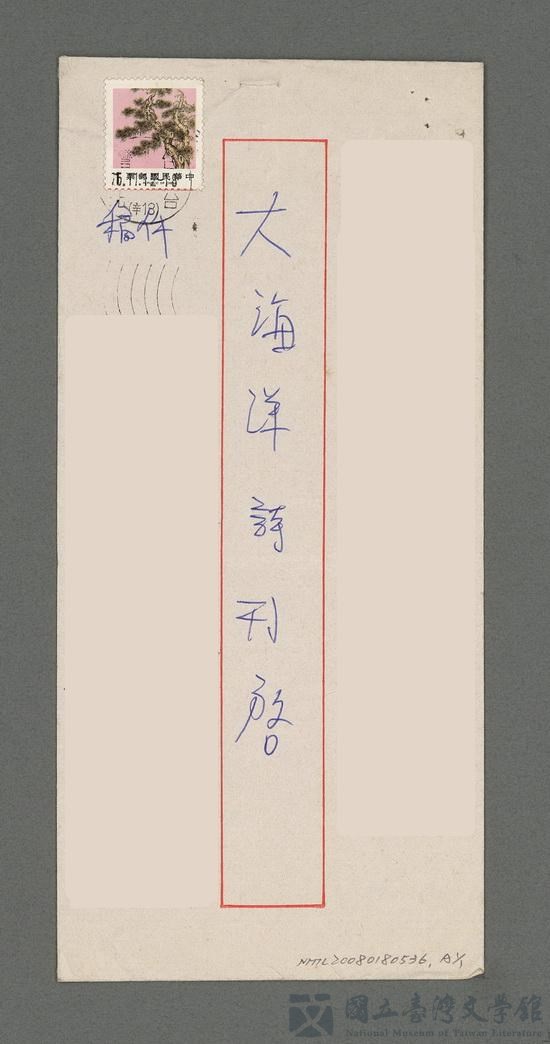 中華民國郵票
76.11.12-10
台
(辛13)
稿件
大海洋詩刊啓
NMTL20080180536, AX,
國立臺灣文學館
National Museum of Taiwan Literature